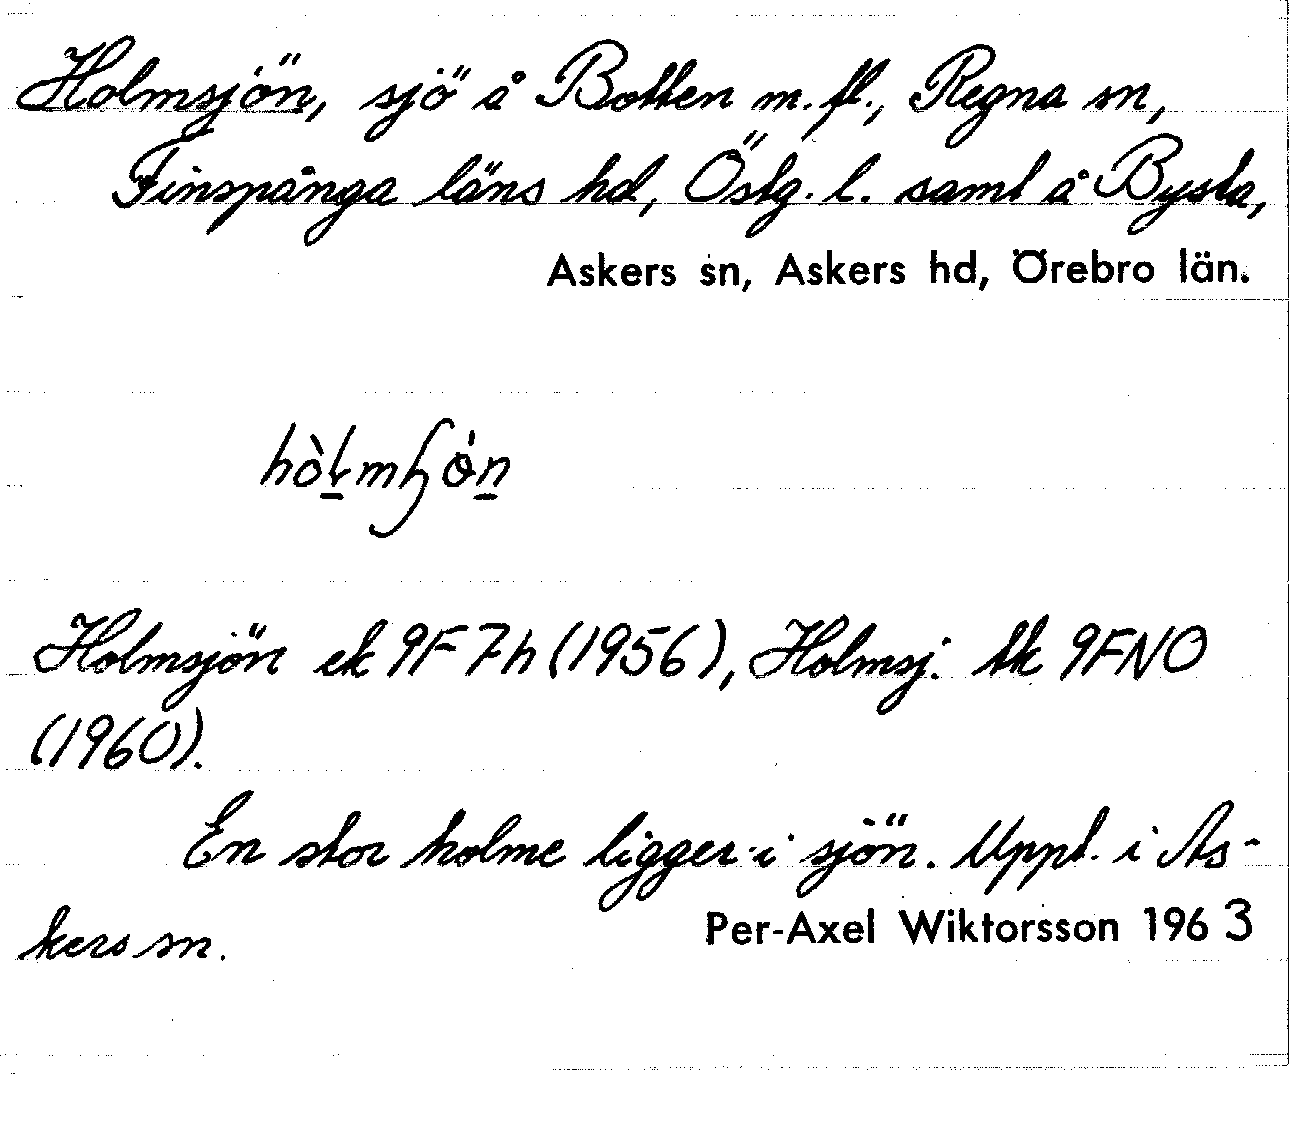 Holmsjön, sjö å Botten m.fl., Regna sn,
Finspånga läns hd, Östg. l. samt å Bysta,
Askers sn, Askers hd, Örebro län.
Holmsjön ek 9F7h (1956), Holmsj. tk 9FNO
(1960).
En stor holme ligger i sjön. Uppt. i As-
kers sn.
Per-Axel Wiktorsson 1963